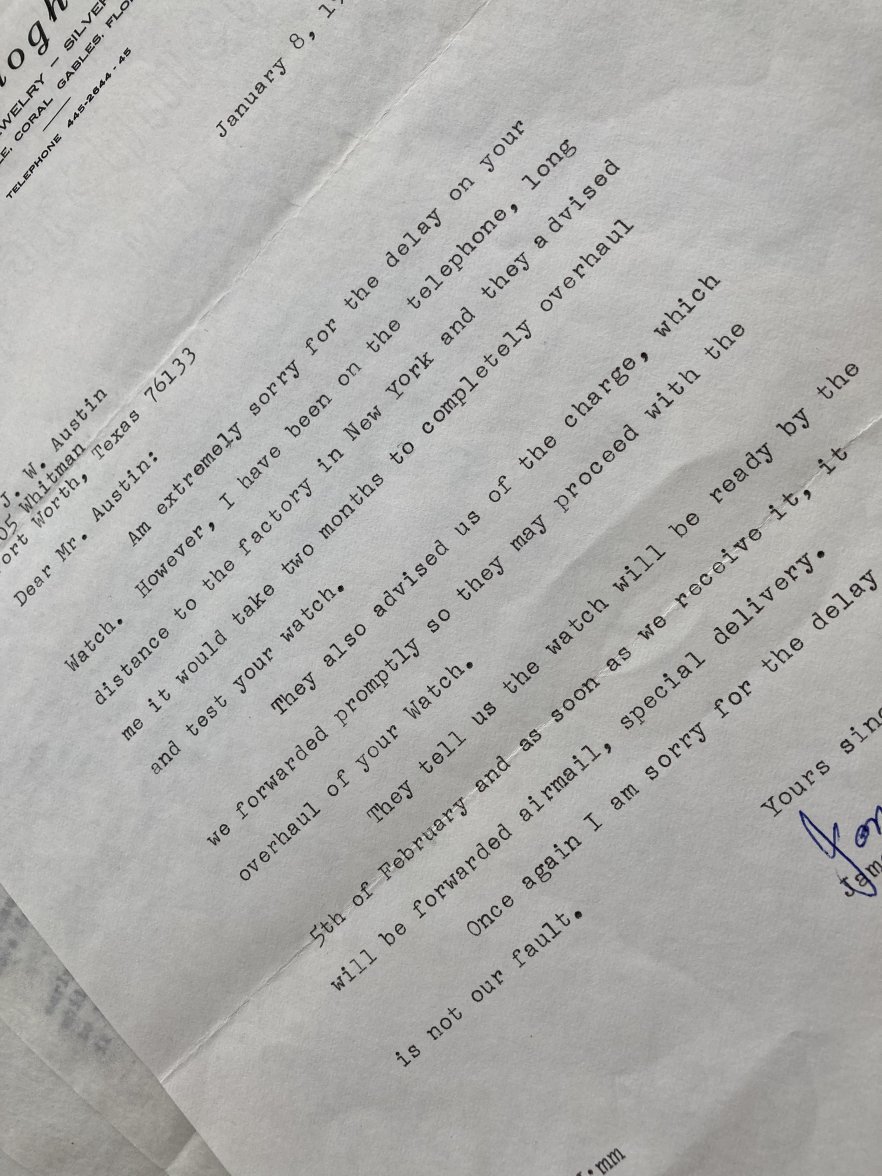 JEWELRY — SILVER
CORAL GABLES, FLO
TELEPHONE 445-2644 - 45
January 8, 1
J. W. Austin
05 Whitman
ort Worth, Texas 76133
Dear Mr. Austin:
Am extremely sorry for the delay on your
Watch. However, I have been on the telephone, long
distance to the factory in New York and they advised
me it would take two months to completely overhaul
and test your watch.
They also advised us of the charge, which
we forwarded promptly so they may proceed with the
overhaul of your Watch.
They tell us the watch will be ready by the
5th of February and as soon as we receive it, it
will be forwarded airmail, special delivery.
Once again I am sorry for the delay
is not our fault.
Yours sinc
Jame
:mm